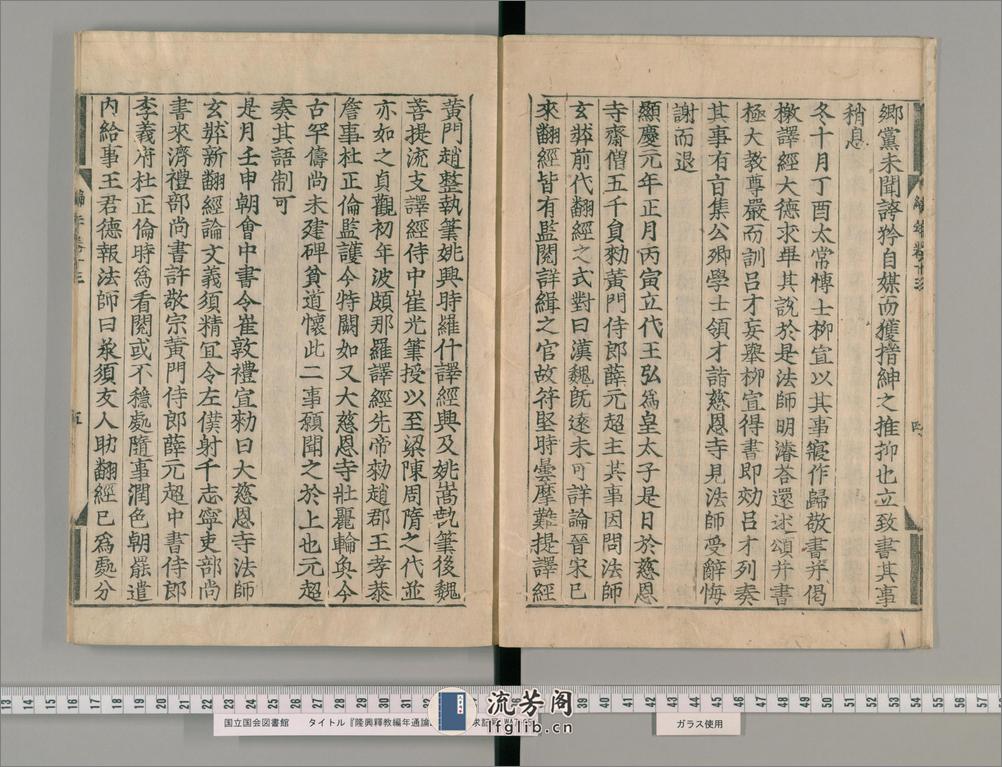 郷黨未聞誇矜自媒而獲搢紳之推抑也立致書其事
稍息
冬十月丁酉太常愽士柳宣以其事寢作歸敬書并偈
檄譯經大德求畢其說於是法師明濬荅還述頌并書
極大教尊嚴而訓吕才妄舉柳宣得書即効吕才列奏
其事有旨集公卿學士領才詣慈恩寺見法師受辭悔
謝而退
顯慶元年正月丙寅立代王弘爲皇太子是日於慈恩
寺齋僧五千負勑黄門侍郎薛元超主其事因問法師
玄奘前代翻經之式對曰漢魏旣遠未可詳論晉宋已
來翻經皆有監閱詳緝之官故符堅時曇摩難提譯經
黄門趙整執筆姚興時羅什譯經興及姚嵩執筆後魏
菩提流支譯經侍中崔光筆授以至梁陳周隋之代並
亦如之貞觀初年波頗那羅譯經先帝勑趙郡王孝恭
詹事杜正倫監護今特闕如又大慈恩寺壯麗輪奐今
古罕儔尚未建碑貧道懷此二事願聞之於上也元超
奏其語制可
是月壬申朝會中書令崔敦禮宣勑曰大慈恩寺法師
玄奘新翻經論文義須精宜令左僕射于志寧吏部尚
書來濟禮部尚書許敬宗黄門侍郎薛元超中書侍郎
李義府杜正倫時爲看閱或不穩處隨事潤色朝罷遣
内給事王君德報法師曰衆須友人助翻經已爲處分
五
国立国会図書館 タイトル『隆興釋教編年通論
流芳阁
lfglib.cn
ガラス使用